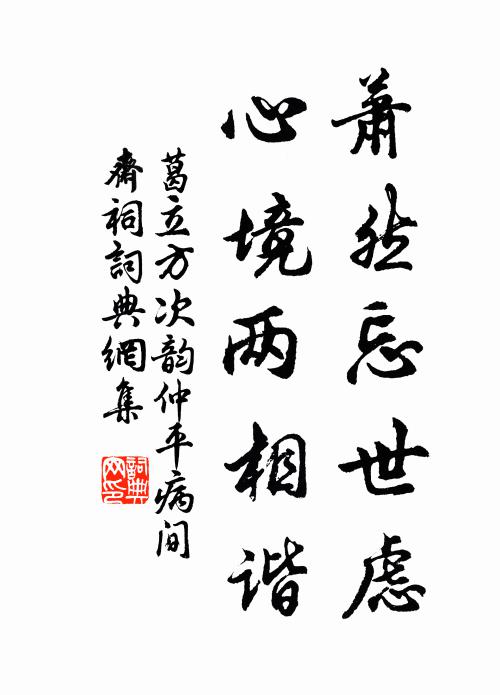 萧然忘世虑
心境两相谐
葛立方次韵仲平病间
斋祠詞典網集
詞典
网印